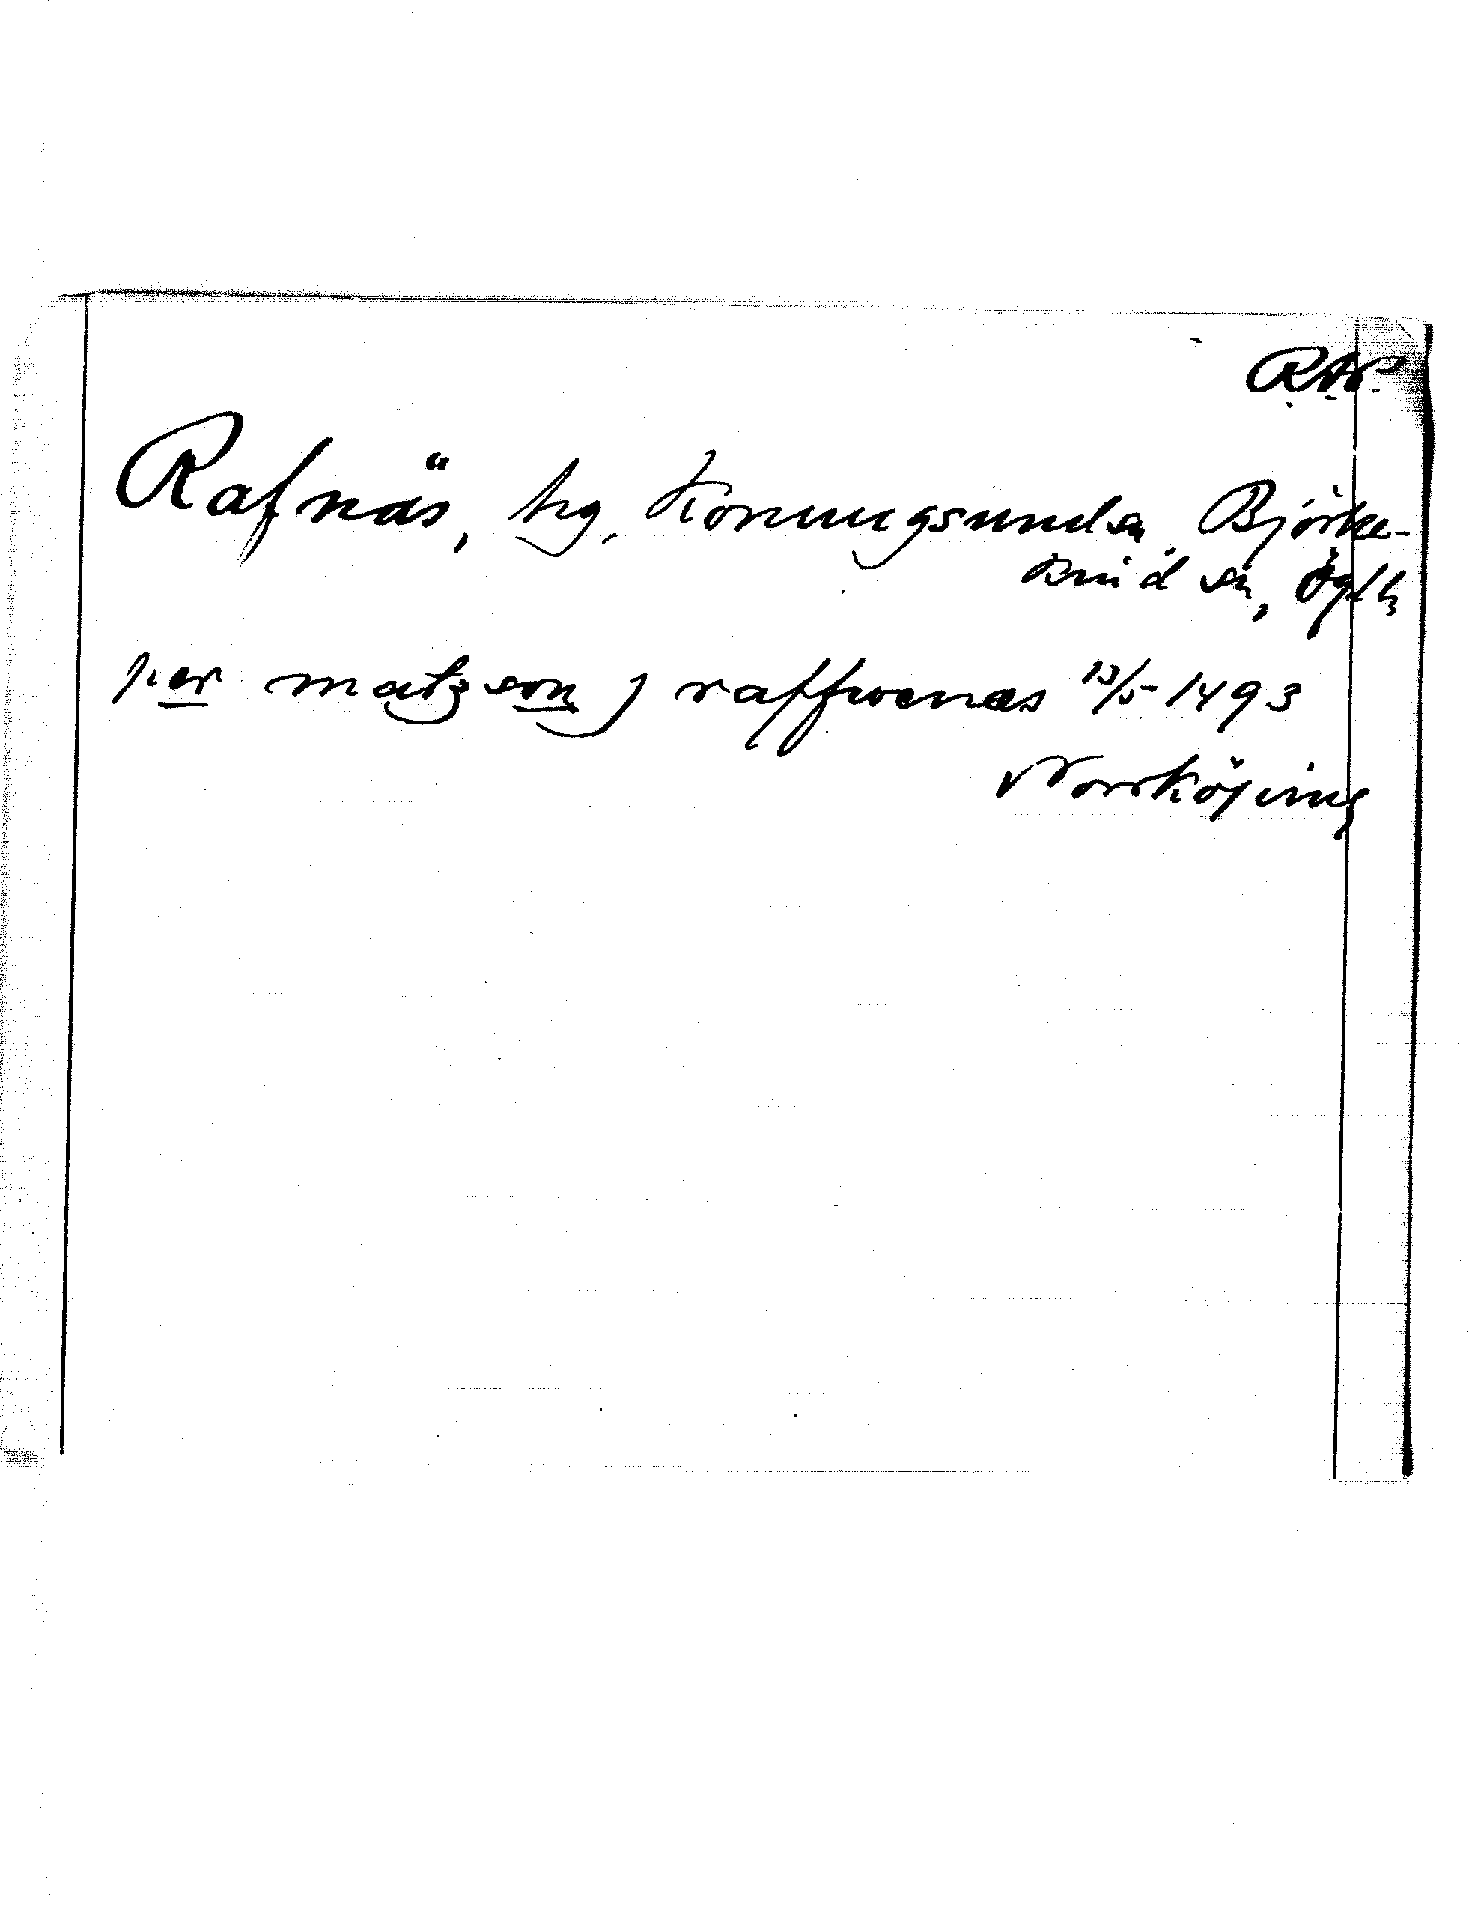 RAP
Rafnäs, hg. Konungsunda Björke-
kind sn, Ögtl,
per matzson j raffwenæs 13/5 1493
Norrköping